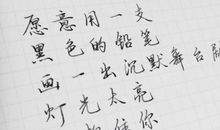 愿意用一支
黑色的铅笔
画一出沉默舞台剧
灯光太亮
你